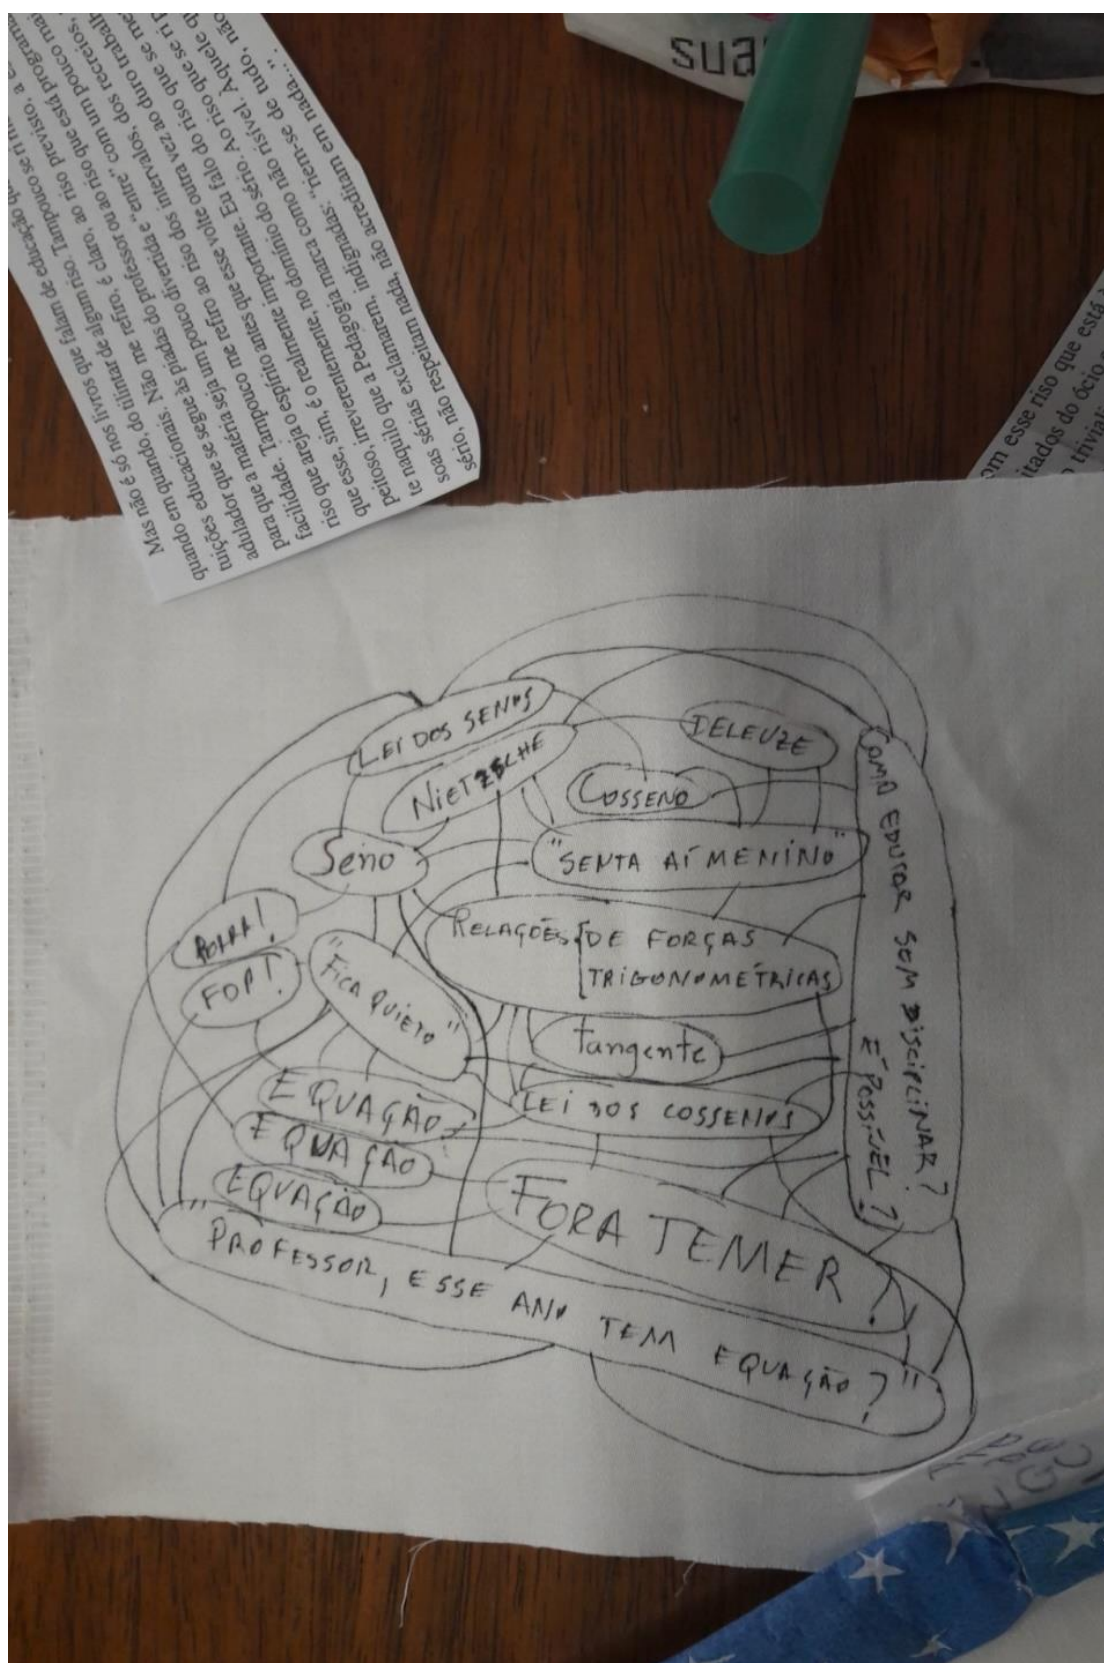 Mas não é só nos livros que falam de educação que se ri m
quando em quando, do tilintar de algum riso. Tampouco se ri
tuições educacionais. Não me refiro, é claro, ao riso previsto, a
adulador que se segue às piadas do professor ou ao riso que está program
para que a matéria seja um pouco divertida e "entre" com um pouco mai
facilidade. Tampouco me refiro ao riso dos intervalos, dos recreios,
riso que areja o espírito antes que esse volte outra vez ao duro trabalh
que esse, sim, é o realmente importante. Eu falo do riso que se me
peitoso, irreverentemente, no domínio do sério. Ao riso que se ri
te naquilo que a Pedagogia marca como não risível. Àquele qu
soas sérias exclamarem, indignadas: "riem-se de tudo, não
sério, não respeitam nada, não acreditam em nada...".
sens
om esse riso que está
itados do ócio
trivial
LEI DOS SENOS
NIETZSCHE
DELEUZE
COSSENO
Seno
"SENTA AÍ MENINO"
COMO EDUCAR SEM DISCIPLINAR?
É POSSÍVEL?
PORRA!
FOPT!
"FICA QUIETO"
RELAÇÕES DE FORÇAS
TRIGONOMÉTRICAS
tangente
LEI DOS COSSENOS
EQUAÇÃO
EQUAÇÃO
EQUAÇÃO
FORA TEMER!
"PROFESSOR, ESSE ANO TEM EQUAÇÃO?"